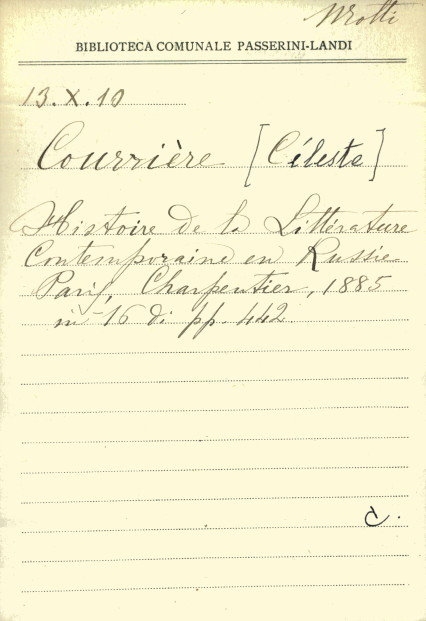 BIBLIOTECA COMUNALE PASSERINI-LANDI
13.X.10
Courrière [Céleste]
Histoire de la Littérature
Contemporaine en Russie
Paris, Charpentier, 1885
in-16 di pp. 442